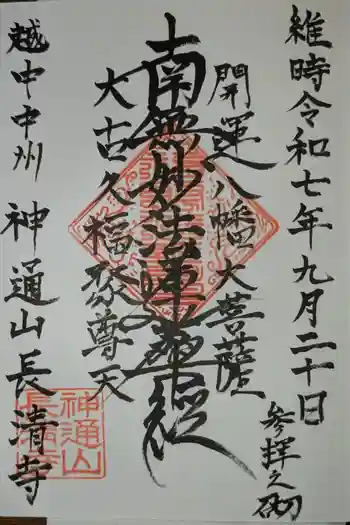 維時令和七年九月二十日
参拝之砌
開運八幡大菩薩
南無妙法蓮華経
大古久福寿尊天
越中中州 神通山長清寺
神通山
長清寺